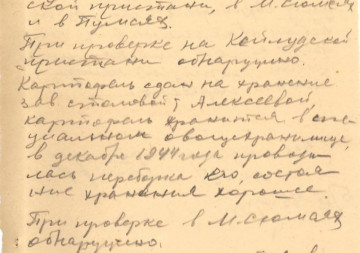 ской пристани, в М. Сюмсях
и в Пумсях.
При проверке на Койлудской
пристани обнаружено.
Картофель сдан на хранение
зав столовой т Алексеевой,
картофель хранится в спе
циальном овощехранилище,
в декабре 1944 года производи
лась переборка его, состоя
ние хранения хорошее.
При проверке в М. Сюмсях
обнаружено.